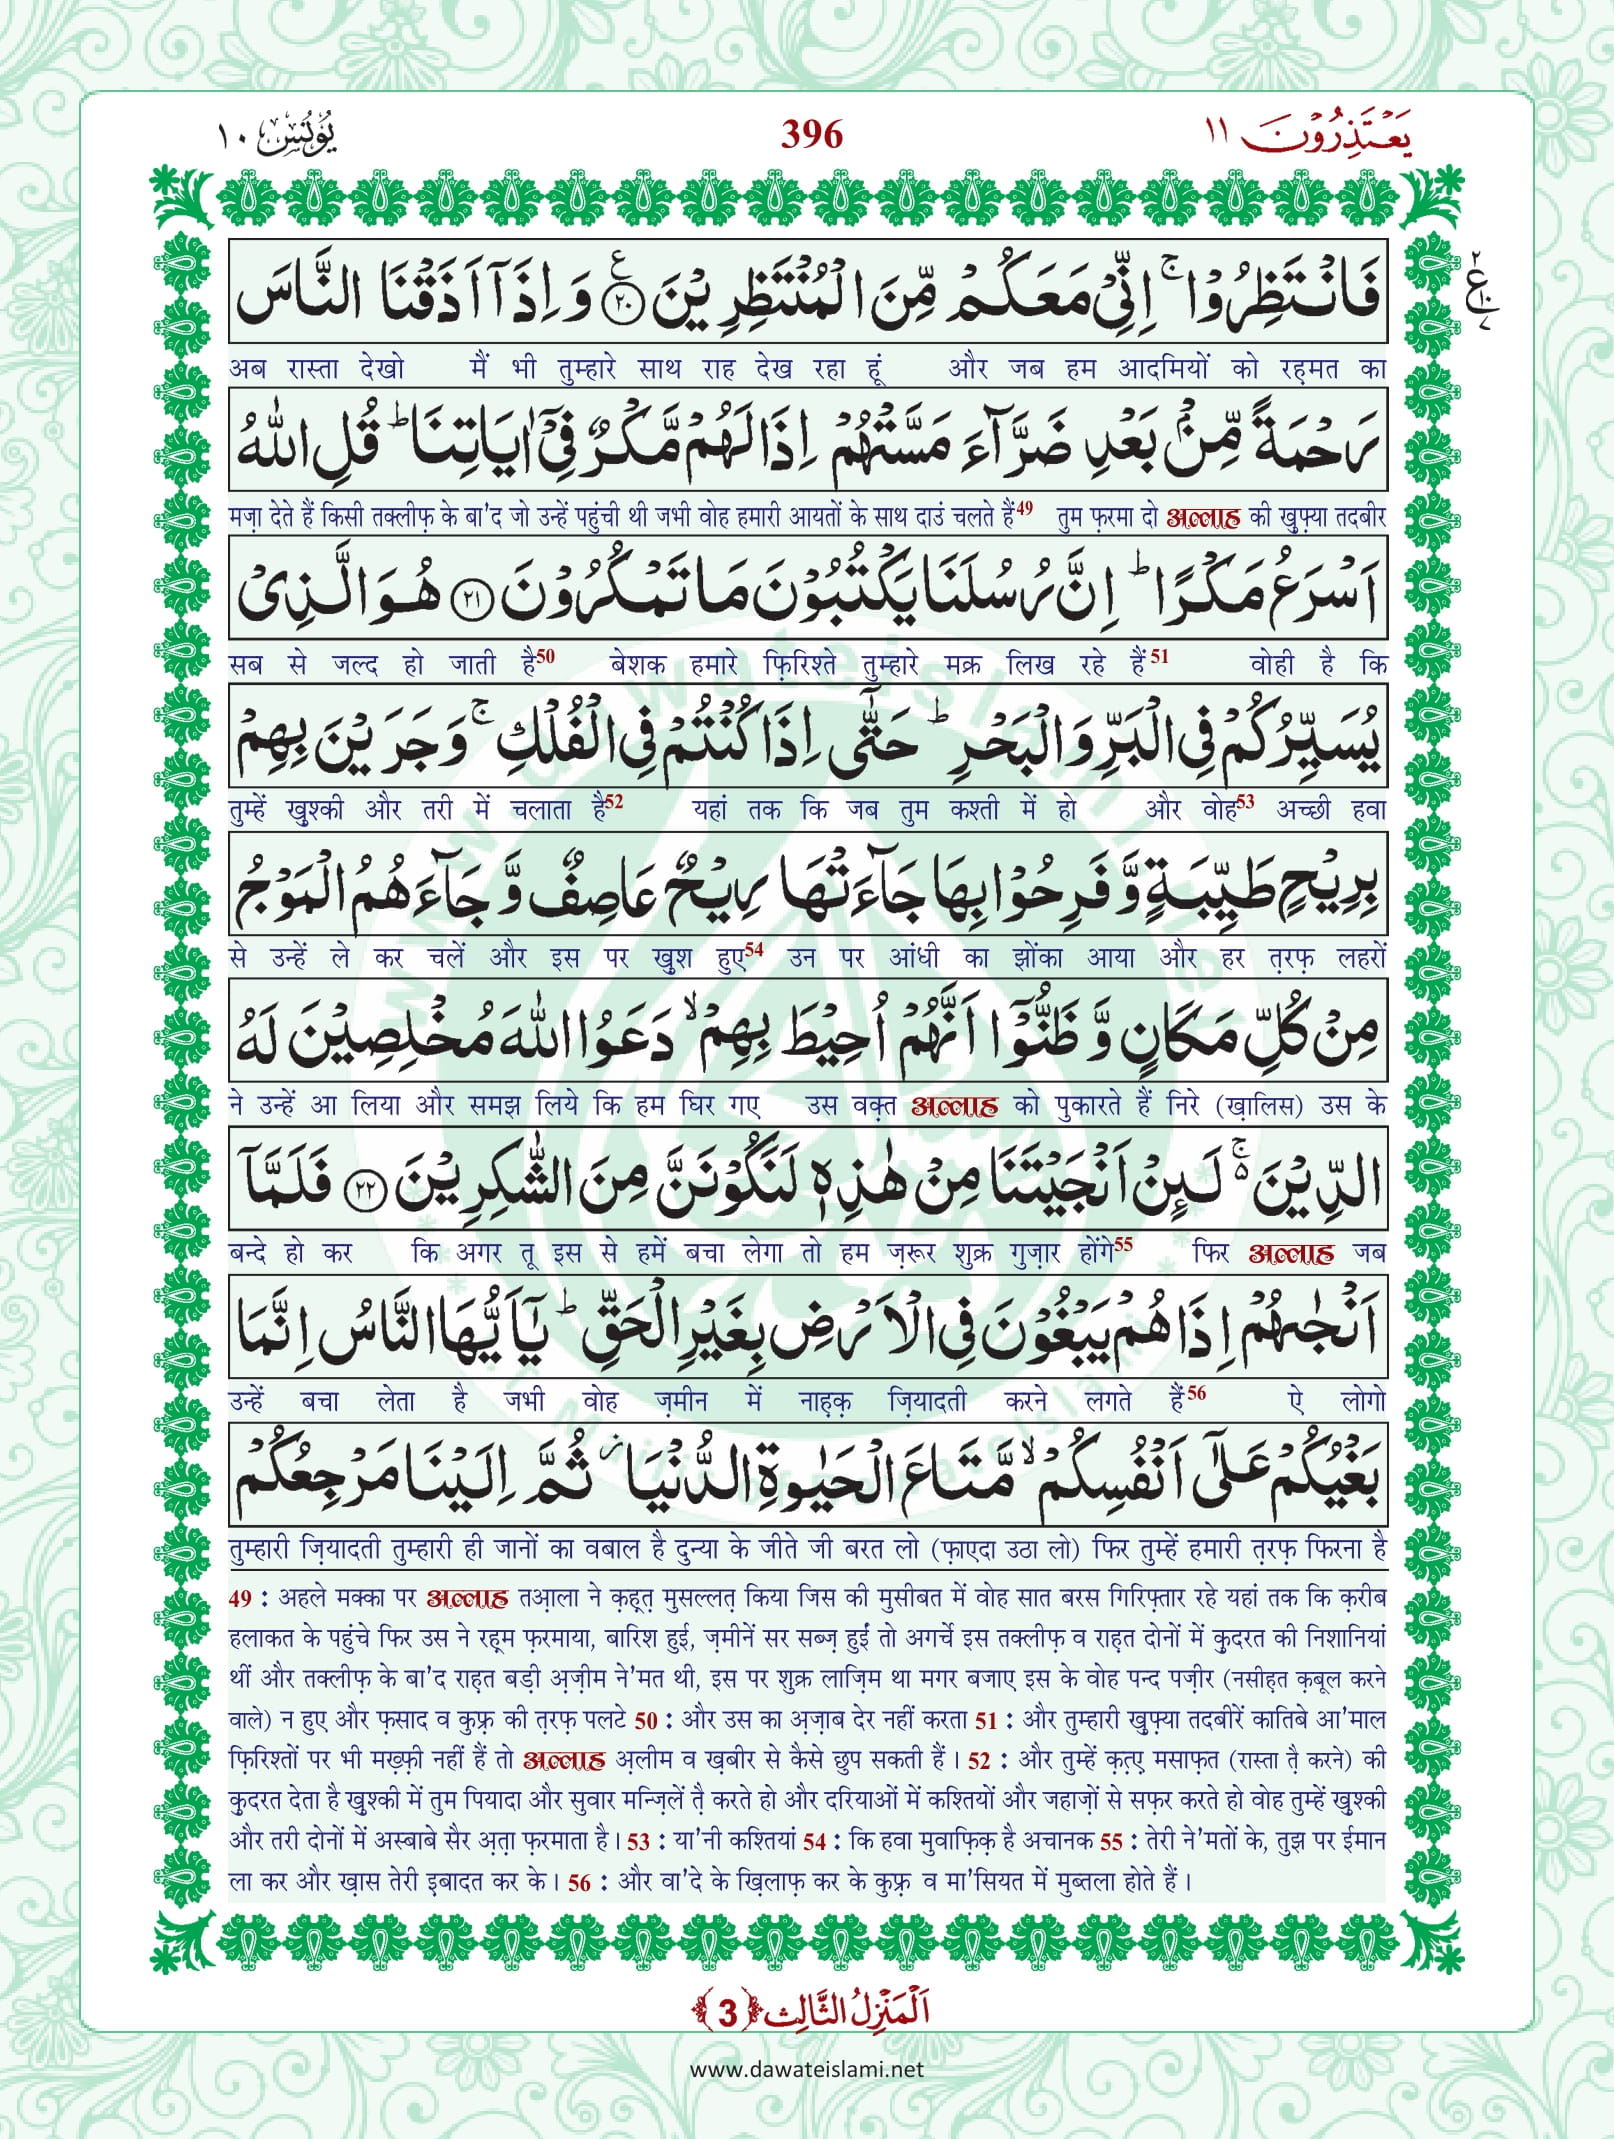 یَعْتَذِرُوْنَ ١١
396
یُوْنُس ١٠
فَانْتَظِرُوْا ۚ اِنِّیْ مَعَكُمْ مِّنَ الْمُنْتَظِرِیْنَ ﴿۲۰﴾ ع وَ اِذَاۤ اَذَقْنَا النَّاسَ
अब रास्ता देखो मैं भी तुम्हारे साथ राह देख रहा हूं और जब हम आदमियों को रह़मत का
رَحْمَةً مِّنْۢ بَعْدِ ضَرَّآءَ مَسَّتْهُمْ اِذَا لَهُمْ مَّكْرٌ فِیْۤ اٰیَاتِنَا ؕ قُلِ اللّٰهُ
मज़ा देते हैं किसी तक्लीफ़ के बा'द जो उन्हें पहुंची थी जभी वोह हमारी आयतों के साथ दाउं चलते हैं49 तुम फ़रमा दो अल्लाह की खुफ़्या तदबीर
اَسْرَعُ مَكْرًا ؕ اِنَّ رُسُلَنَا یَكْتُبُوْنَ مَا تَمْكُرُوْنَ ﴿۲۱﴾ هُوَ الَّذِیْ
सब से जल्द हो जाती है50 बेशक हमारे फ़िरिश्ते तुम्हारे मक्र लिख रहे हैं51 वोही है कि
یُسَیِّرُكُمْ فِی الْبَرِّ وَ الْبَحْرِ ؕ حَتّٰۤی اِذَا كُنْتُمْ فِی الْفُلْكِ ۚ وَ جَرَیْنَ بِهِمْ
तुम्हें खु़श्की और तरी में चलाता है52 यहां तक कि जब तुम कश्ती में हो और वोह53 अच्छी हवा
بِرِیْحٍ طَیِّبَةٍ وَّ فَرِحُوْا بِهَا جَآءَتْهَا رِیْحٌ عَاصِفٌ وَّ جَآءَهُمُ الْمَوْجُ
से उन्हें ले कर चलें और इस पर खु़श हुए54 उन पर आंधी का झोंका आया और हर त़रफ़ लहरों
مِنْ كُلِّ مَكَانٍ وَّ ظَنُّوْۤا اَنَّهُمْ اُحِیْطَ بِهِمْ ۙ دَعَوُا اللّٰهَ مُخْلِصِیْنَ لَهُ
ने उन्हें आ लिया और समझ लिये कि हम घिर गए उस वक़्त अल्लाह को पुकारते हैं निरे (ख़ालिस) उस के
الدِّیْنَ ۚ۬ لَىِٕنْ اَنْجَیْتَنَا مِنْ هٰذِهٖ لَنَكُوْنَنَّ مِنَ الشّٰكِرِیْنَ ﴿۲۲﴾ فَلَمَّاۤ
बन्दे हो कर कि अगर तू इस से हमें बचा लेगा तो हम ज़रूर शुक्र गुज़ार होंगे55 फिर अल्लाह जब
اَنْجٰىهُمْ اِذَا هُمْ یَبْغُوْنَ فِی الْاَرْضِ بِغَیْرِ الْحَقِّ ؕ یٰۤاَیُّهَا النَّاسُ اِنَّمَا
उन्हें बचा लेता है जभी वोह ज़मीन में नाह़क़ ज़ियादती करने लगते हैं56 ऐ लोगो
بَغْیُكُمْ عَلٰۤی اَنْفُسِكُمْ ۙ مَّتَاعَ الْحَیٰوةِ الدُّنْیَا ؗ ثُمَّ اِلَیْنَا مَرْجِعُكُمْ
तुम्हारी ज़ियादती तुम्हारी ही जानों का वबाल है दुन्या के जीते जी बरत लो (फ़ाएदा उठा लो) फिर तुम्हें हमारी त़रफ़ फिरना है
49 : अहले मक्का पर अल्लाह तआ़ला ने क़ह़्त़ मुसल्लत़ किया जिस की मुसीबत में वोह सात बरस गिरिफ़्तार रहे यहां तक कि क़रीब
हलाकत के पहुंचे फिर उस ने रह़्म फ़रमाया, बारिश हुई, ज़मीनें सर सब्ज़ हुईं तो अगर्चे इस तक्लीफ़ व राह़त दोनों में कु़दरत की निशानियां
थीं और तक्लीफ़ के बा'द राह़त बड़ी अ़ज़ीम ने'मत थी, इस पर शुक्र लाज़िम था मगर बजाए इस के वोह पन्द पज़ीर (नसीह़त क़बूल करने
वाले) न हुए और फ़साद व कुफ़्र की त़रफ़ पलटे 50 : और उस का अ़ज़ाब देर नहीं करता 51 : और तुम्हारी खु़फ़्या तदबीरें कातिबे आ'माल
फ़िरिश्तों पर भी मख़्फ़ी नहीं हैं तो अल्लाह अ़लीम व ख़बीर से कैसे छुप सकती हैं । 52 : और तुम्हें क़त़्ए मसाफ़त (रास्ता त़ै करने) की
कु़दरत देता है खु़श्की में तुम पियादा और सुवार मन्ज़िलें त़ै करते हो और दरियाओं में कश्तियों और जहाज़ों से सफ़र करते हो वोह तुम्हें खु़श्की
और तरी दोनों में अस्बाबे सैर अ़त़ा फ़रमाता है । 53 : या'नी कश्तियां 54 : कि हवा मुवाफ़िक़ है अचानक 55 : तेरी ने'मतों के, तुझ पर ईमान
ला कर और ख़ास तेरी इ़बादत कर के । 56 : और वा'दे के ख़िलाफ़ कर के कुफ़्र व मा'सियत में मुब्तला होते हैं ।
اَلْمَنْزِلُ الثَّالِث ﴿3﴾
www.dawateislami.net